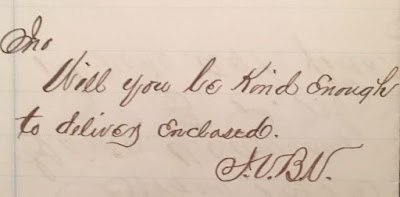 Jno
Will you be Kind Enough
to deliver Enclosed.
A.V.B.N.